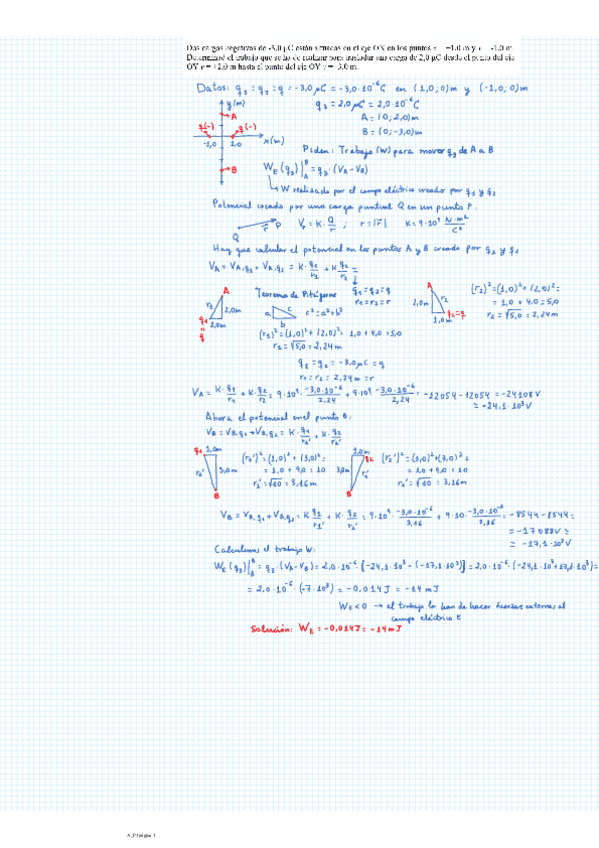 Dos cargas negativas de -3,0 μC están situadas en el eje OX en los puntos x = +1,0 m y x = -1,0 m.
Determined el trabajo que se ha de realizar para trasladar una carga de 2,0 μC desde el punto del eje
OY y = +2,0 m hasta el punto del eje OY y = -3,0 m.
Datos: q1 = q2 = q = -3,0 μC = -3,0·10^-6 C en (1,0;0)m y (-1,0;0)m
q3 = 2,0 μC = 2,0·10^-6 C
A = (0;2,0)m
B = (0;-3,0)m
y(m)
A
q(-)
q(-)
-1,0
1,0
x(m)
B
Piden: Trabajo (W) para mover q3 de A a B
WE(q3)]A^B = q3·(VA-VB)
↳ W realizado por el campo eléctrico creado por q1 y q2
Potencial creado por una carga puntual Q en un punto P:
Q r P Vp = K·Q/r ; r = |r| K = 9·10^9 N·m²/C²
Hay que calcular el potencial en los puntos A y B creado por q1 y q2
VA = VA,q1 + VA,q2 = K·q1/r1 + K·q2/r2 =
q1 = q2 = q
r1 = r2 = r
A
r1
2,0m
q1
1,0m
q
Teorema de Pitágoras
a
c
b
c² = a² + b²
(r1)² = (1,0)² + (2,0)² = 1,0 + 4,0 = 5,0
r1 = √5,0 = 2,24m
A
2,0m
r2
1,0m
q2=q
(r2)² = (1,0)² + (2,0)² =
= 1,0 + 4,0 = 5,0
r2 = √5,0 = 2,24m
q1 = q2 = -3,0 μC = q
r1 = r2 = 2,24 m = r
VA = K·q1/r1 + K·q2/r2 = 9·10^9·-3,0·10^-6/2,24 + 9·10^9·-3,0·10^-6/2,24 = -12054 - 12054 = -24108V
= -24,1·10³V
Ahora el potencial en el punto B:
VB = VB,q1 + VB,q2 = K·q1/r1' + K·q2/r2'
q1
1,0m
r1'
3,0m
B
(r1')² = (1,0)² + (3,0)² =
= 1,0 + 9,0 = 10
r1' = √10 = 3,16m
1,0m
q2
3,0m
r2'
B
(r2')² = (1,0)² + (3,0)² =
= 1,0 + 9,0 = 10
r2' = √10 = 3,16m
VB = VB,q1 + VB,q2 = K·q1/r1' + K·q2/r2' = 9·10^9·-3,0·10^-6/3,16 + 9·10·-3,0·10^-6/3,16 = -8544 - 8544 =
= -17088V =
= -17,1·10³V
Calculemos el trabajo W:
WE(q3)]A^B = q3·(VA-VB) = 2,0·10^-6·[-24,1·10³ - (-17,1·10³)] = 2,0·10^-6·(-24,1·10³+17,1·10³) =
= 2,0·10^-6·(-7·10³) = -0,014J = -14mJ
WE < 0 → el trabajo lo han de hacer fuerzas externas al
campo eléctrico E
Solución: WE = -0,014J = -14mJ